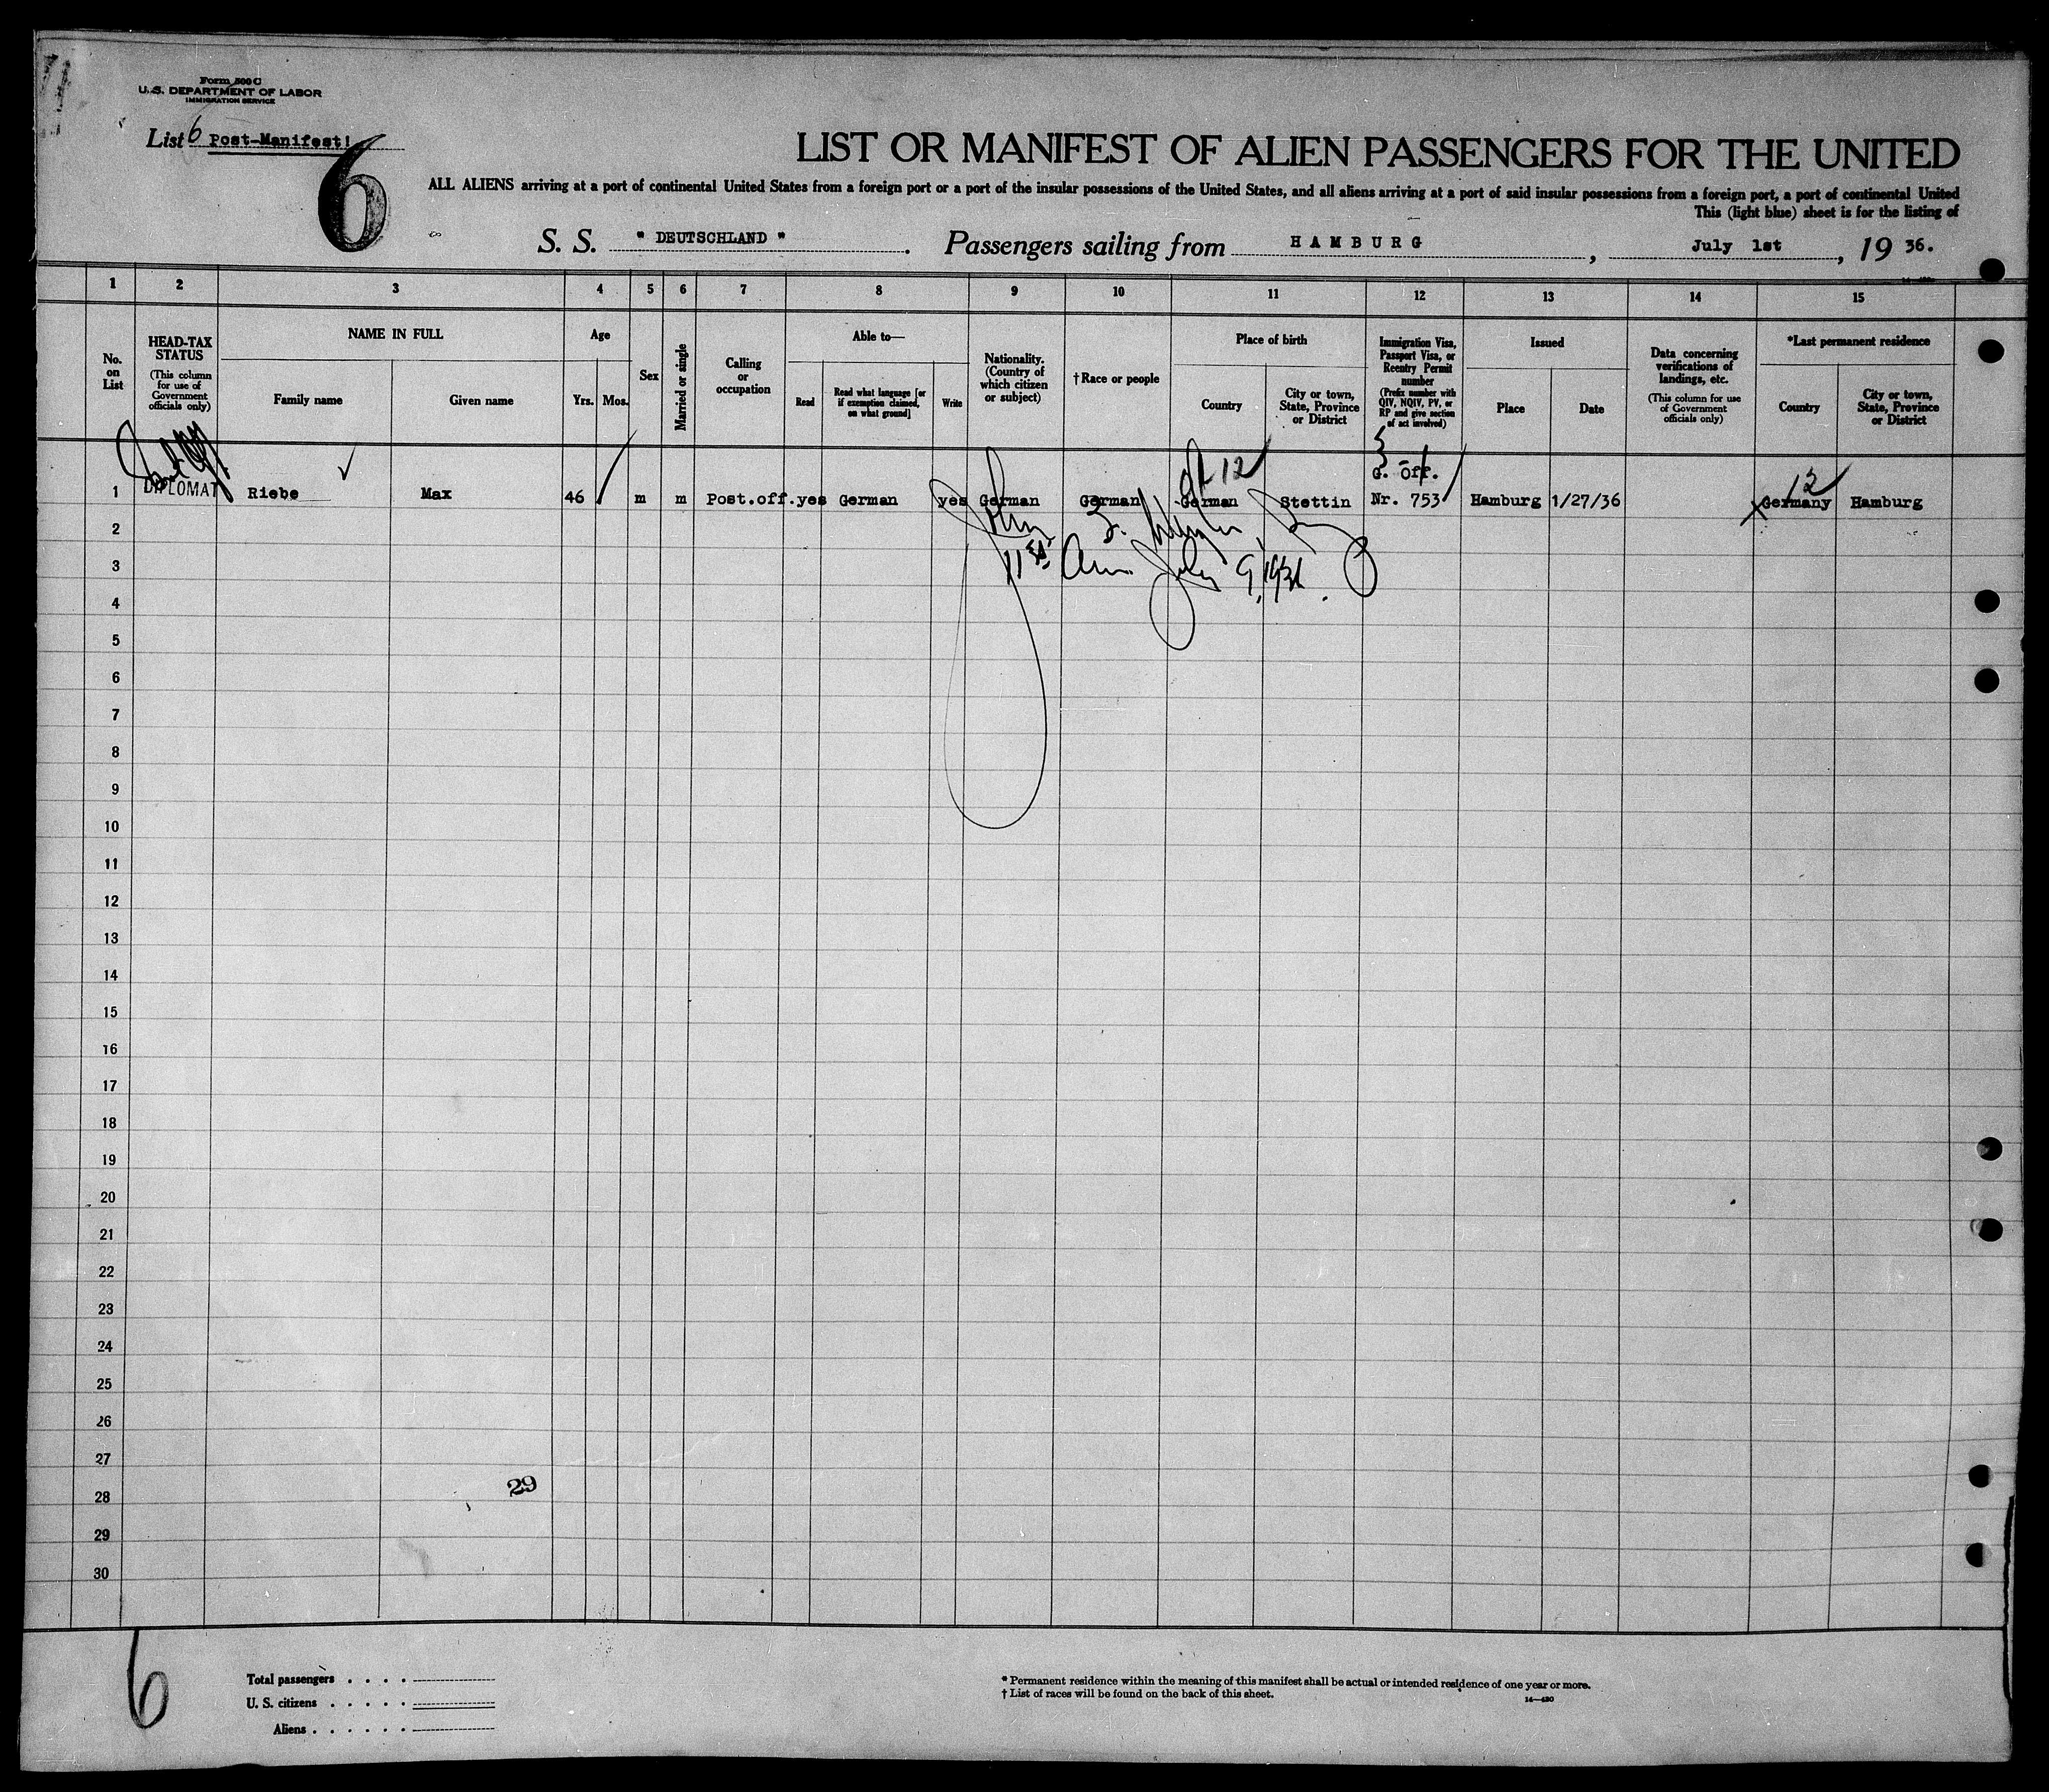 Form 500 C
U. S. DEPARTMENT OF LABOR
IMMIGRATION SERVICE
List 6 Post-Manifest!
6
LIST OR MANIFEST OF ALIEN PASSENGERS FOR THE UNITED
ALL ALIENS arriving at a port of continental United States from a foreign port or a port of the insular possessions of the United States, and all aliens arriving at a port of said insular possessions from a foreign port, a port of continental United
This (light blue) sheet is for the listing of
S. S. " DEUTSCHLAND " . Passengers sailing from HAMBURG , July 1st , 19 36.
1 2 3 4 5 6 7 8 9 10 11 12 13 14 15
No. on List
HEAD-TAX STATUS
(This column for use of Government officials only)
NAME IN FULL
Family name
Given name
Age
Yrs.
Mos.
Sex
Married or single
Calling or occupation
Able to—
Read
Read what language [or if exemption claimed, on what ground]
Write
Nationality. (Country of which citizen or subject)
† Race or people
Place of birth
Country
City or town, State, Province or District
Immigration Visa, Passport Visa, or Reentry Permit number
(Prefix number with QIV, NQIV, PV, or RP and give section of act involved)
Issued
Place
Date
Data concerning verifications of landings, etc.
(This column for use of Government officials only)
*Last permanent residence
Country
City or town, State, Province or District
12 G. Off. 12
1 DIPLOMAT Riebe Max 46 m m Post.off. yes German yes German German German Stettin Nr. 753 Hamburg 1/27/36 Germany Hamburg
2 John
3 July 9, 1936.
4
5
6
7
8
9
10
11
12
13
14
15
16
17
18
19
20
21
22
23
24
25
26
27
29
28
29
30
6
Total passengers . . . .
U. S. citizens . . . . .
Aliens . . . . . .
* Permanent residence within the meaning of this manifest shall be actual or intended residence of one year or more.
† List of races will be found on the back of this sheet.
14—430